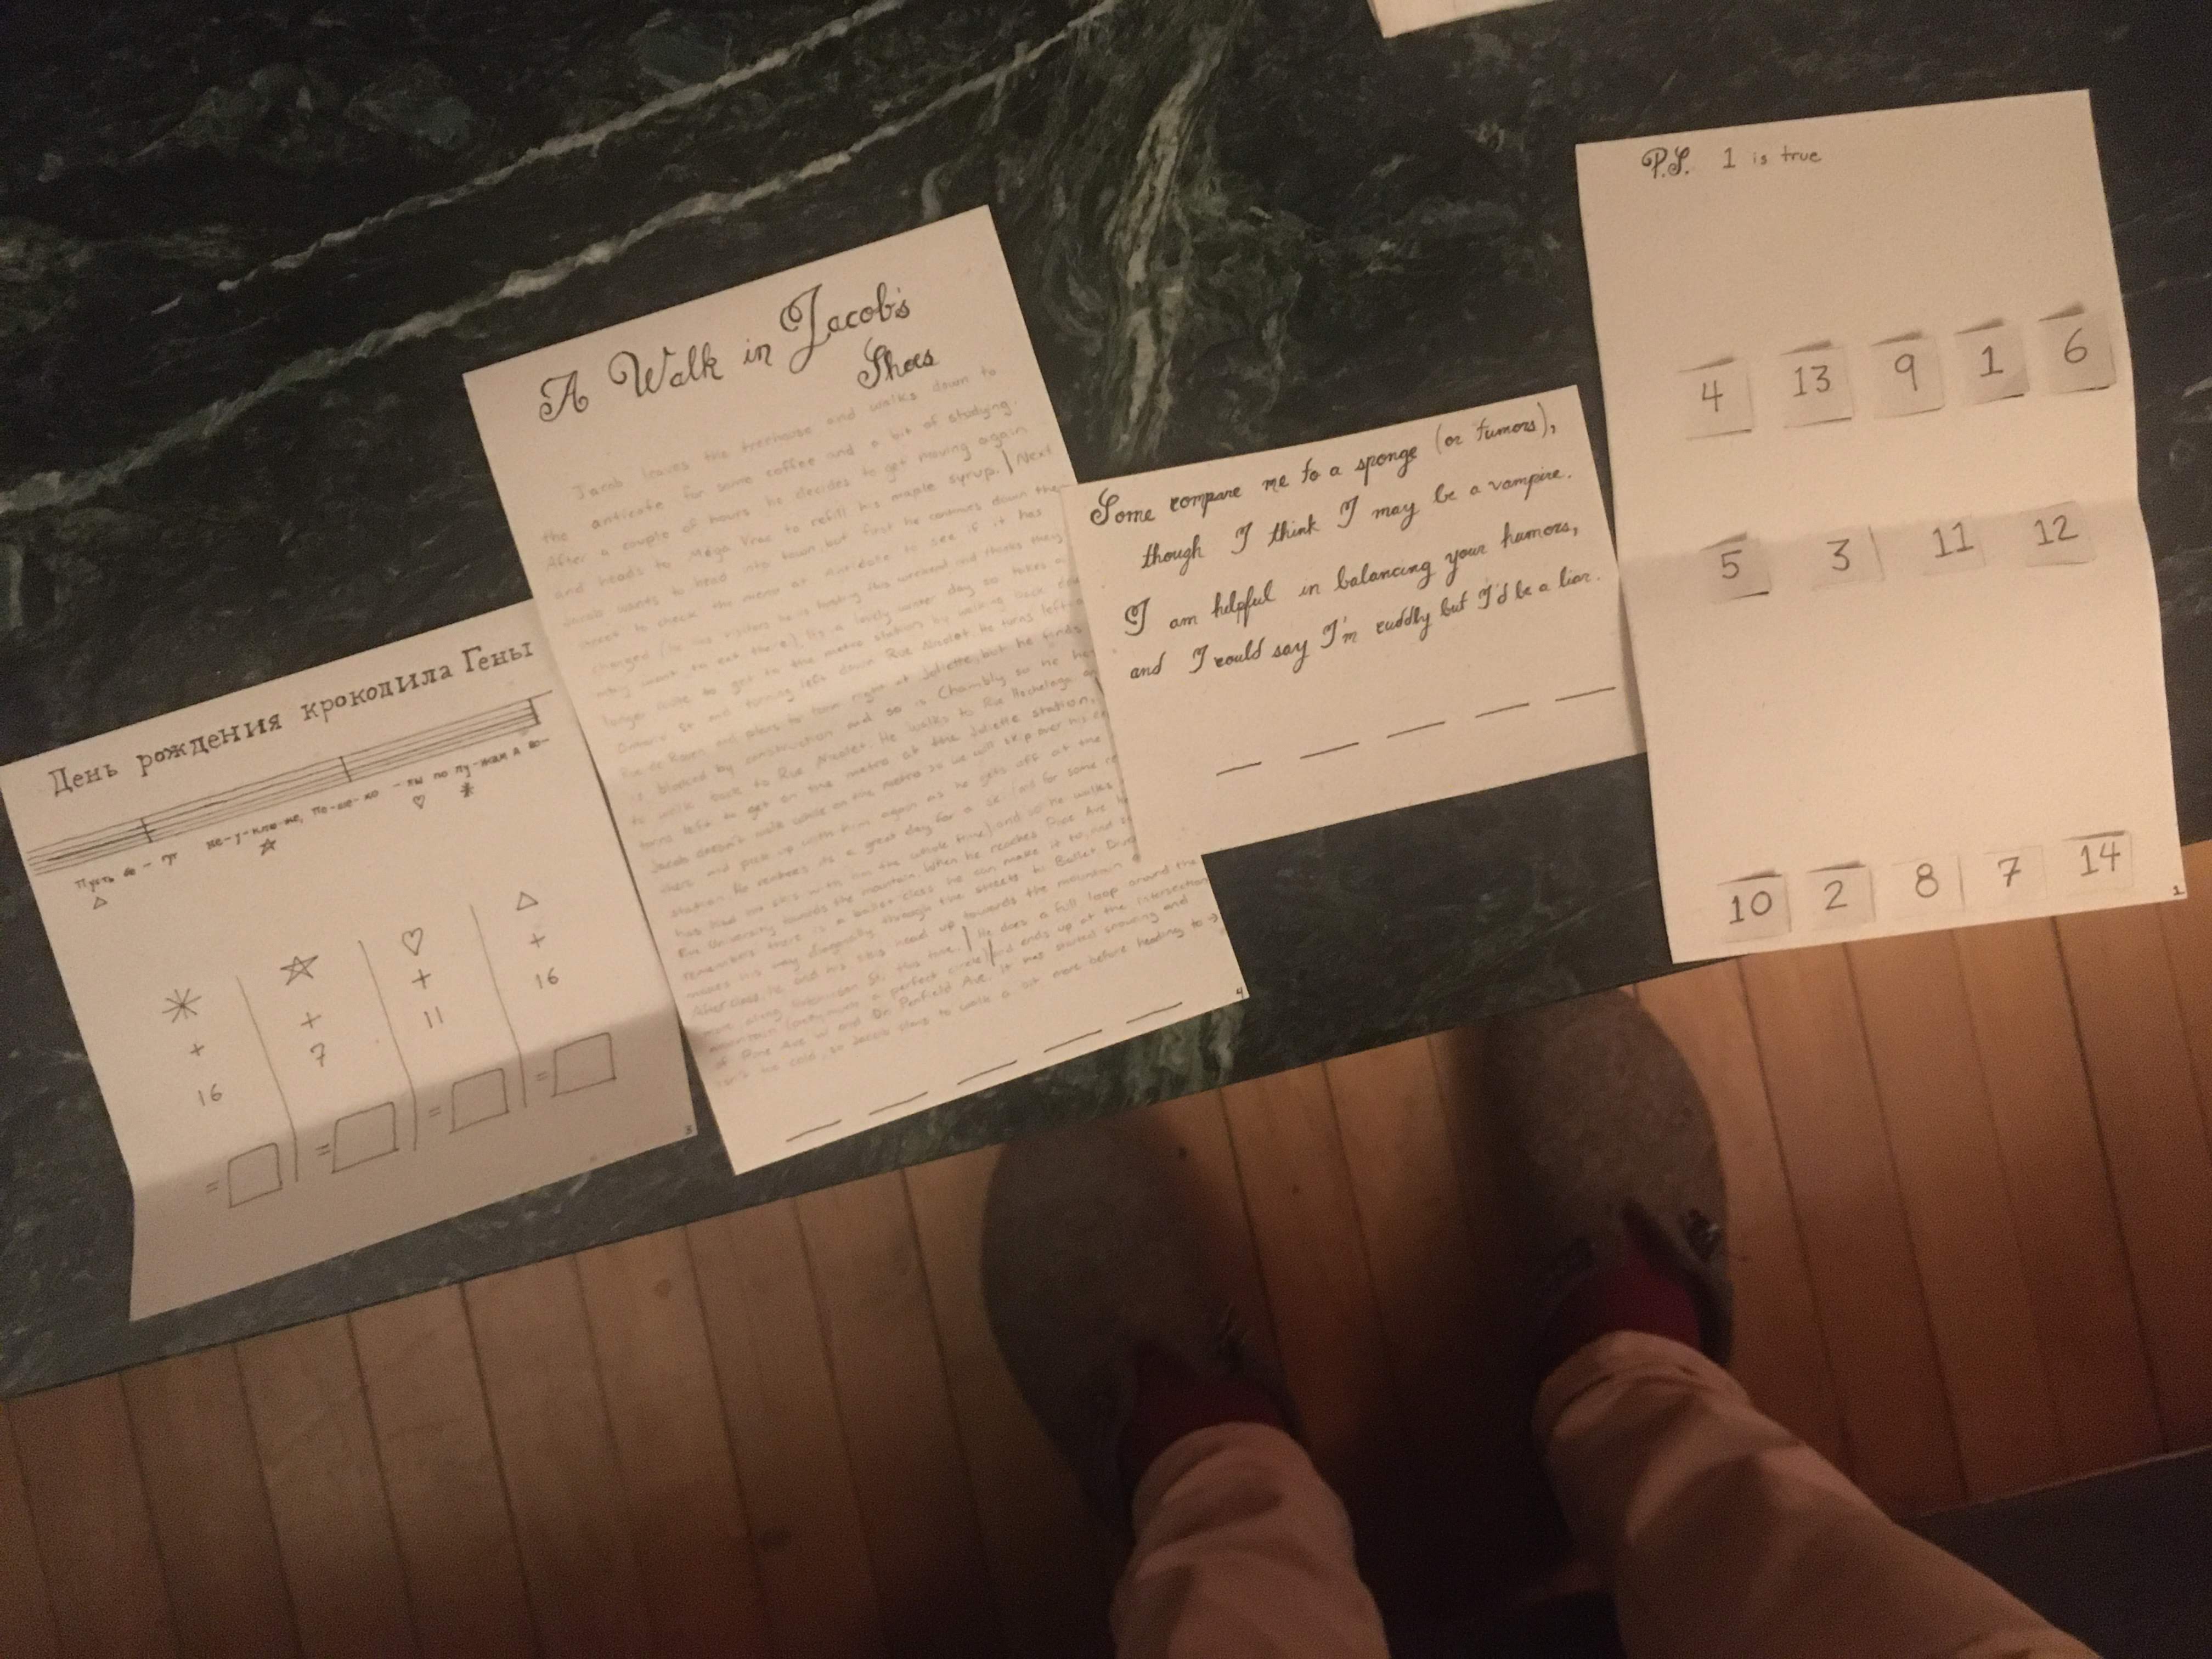 День рождения крокодила Гены
Пусть бе - гут не-у-клю-же, По-ше-хо -ты по лу-жам а во-
△ ☆ ♡ *
* ☆ ♡ △
+ + + +
16 7 11 16
= = = =
3
A Walk in Jacob's
Shoes
Jacob leaves the treehouse and walks down to
the anticafe for some coffee and a bit of studying.
After a couple of hours he decides to get moving again
and heads to Mega Vrac to refill his maple syrup. | Next
Jacob wants to head into town, but first he continues down the
street to check the menu at Antidote to see if it has
changed (he has visitors he is hosting this weekend and thinks they
may want to eat there). It's a lovely winter day so takes a
longer route to get to the metro station by walking back
Ontario St and turning left down Rue Nicolet. He turns left
Rue de Rouen and plans to turn right at Joliette, but he finds
is blocked by construction and so is Chambly so he
to walk back to Rue Nicolet. He walks to Rue Hochelaga
turns left to get on the metro at the Joliette station.
Jacob doesn't walk while on the metro so we will skip over his
there and pick up with him again as he gets off at the
station. He realizes it's a great day for a ski (and for some
has had his skis with him the whole time) and so he walks
Rue University towards the mountain. When he reaches Pine Ave
remembers there is a ballet class he can make it to, and
makes his way diagonally through the streets to Ballet
After class, he and his skis head up towards the mountain
more along St. this time. | He does a full loop around the
mountain (pretty much a perfect circle) | and ends up at the intersection
of Pine Ave W and Dr Penfield Ave. It has started snowing and
isn't too cold, so Jacob plans to walk a bit more before heading to →
4
Some compare me to a sponge (or tumors),
though I think I may be a vampire.
I am helpful in balancing your humors,
and I could say I'm cuddly but I'd be a liar.
P.S. 1 is true
4 13 9 1 6
5 3 11 12
10 2 8 7 14
1